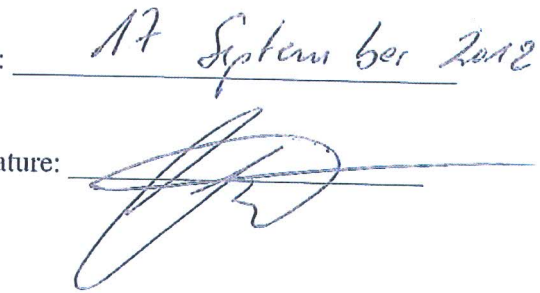 : 17 September 2012
ature: